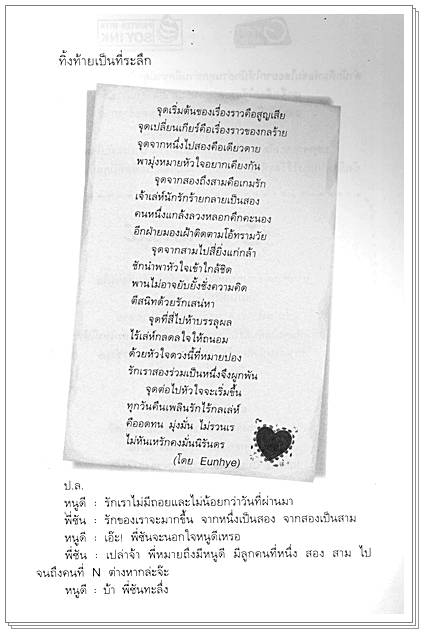 ทิ้งท้ายเป็นที่ระลึก
จุดเริ่มต้นของเรื่องราวคือสูญเสีย
จุดเปลี่ยนเกียร์คือเรื่องราวของกลร้าย
จุดจากหนึ่งไปสองคือเดียวดาย
พามุ่งหมายหัวใจอยากเคียงกัน
จุดจากสองถึงสามคือเกมรัก
เจ้าเล่ห์นักรักร้ายกลายเป็นสอง
คนหนึ่งแกล้งลวงหลอกคึกคะนอง
อีกฝ่ายมองเฝ้าติดตามโอ้ทรามวัย
จุดจากสามไปสี่ยิ่งแก่กล้า
ชักนำพาหัวใจเข้าใกล้ชิด
พานไม่อาจยับยั้งชั่งความคิด
ตีสนิทด้วยรักเสน่หา
จุดที่สี่ไปห้าบรรลุผล
ไร้เล่ห์กลดลใจให้ถนอม
ด้วยหัวใจดวงนี้ที่หมายปอง
รักเราสองร่วมเป็นหนึ่งจึงผูกพัน
จุดต่อไปหัวใจจะเริ่มขึ้น
ทุกวันคืนเพลินรักไร้กลเล่ห์
คืออดทน มุ่งมั่น ไม่รวนเร
ไม่หันเหรักคงมั่นนิรันดร
(โดย Eunhye)
ป.ล.
หนูดี : รักเราไม่มีถอยและไม่น้อยกว่าวันที่ผ่านมา
พี่ซัน : รักของเราจะมากขึ้น จากหนึ่งเป็นสอง จากสองเป็นสาม
หนูดี : เอ๊ะ! พี่ซันจะนอกใจหนูดีเหรอ
พี่ซัน : เปล่าจ้า พี่หมายถึงมีหนูดี มีลูกคนที่หนึ่ง สอง สาม ไป
จนถึงคนที่ N ต่างหากล่ะจ๊ะ
หนูดี : บ้า พี่ซันทะลึ่ง